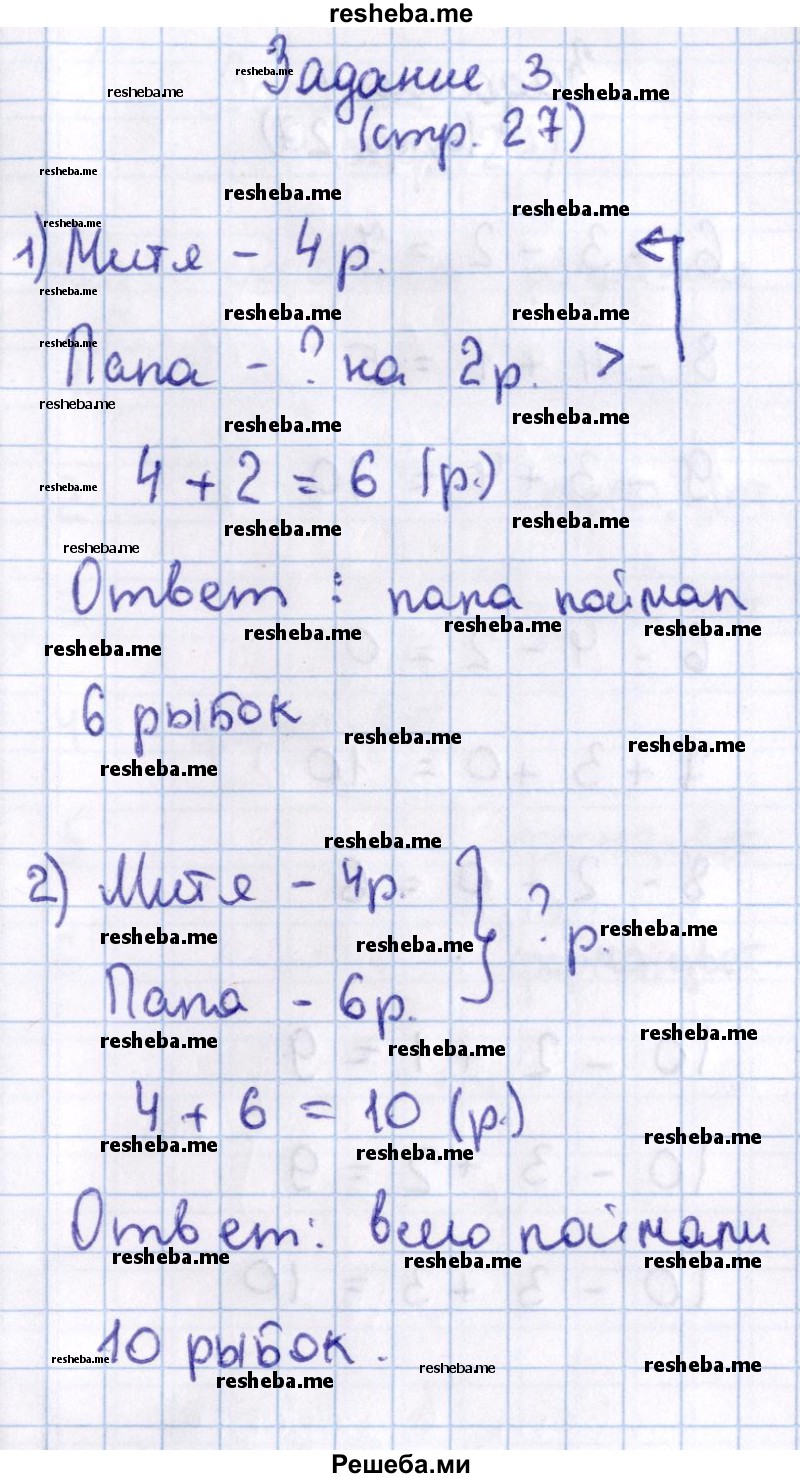 resheba.me
Задание 3
(стр. 27)
1) Митя - 4 р.
Папа - ? на 2 р. >
4 + 2 = 6 (р.)
Ответ : папа поймал
6 рыбок
2) Митя - 4 р. } ? р.
Папа - 6 р.
4 + 6 = 10 (р.)
Ответ: всего поймали
10 рыбок.
Решеба.ми